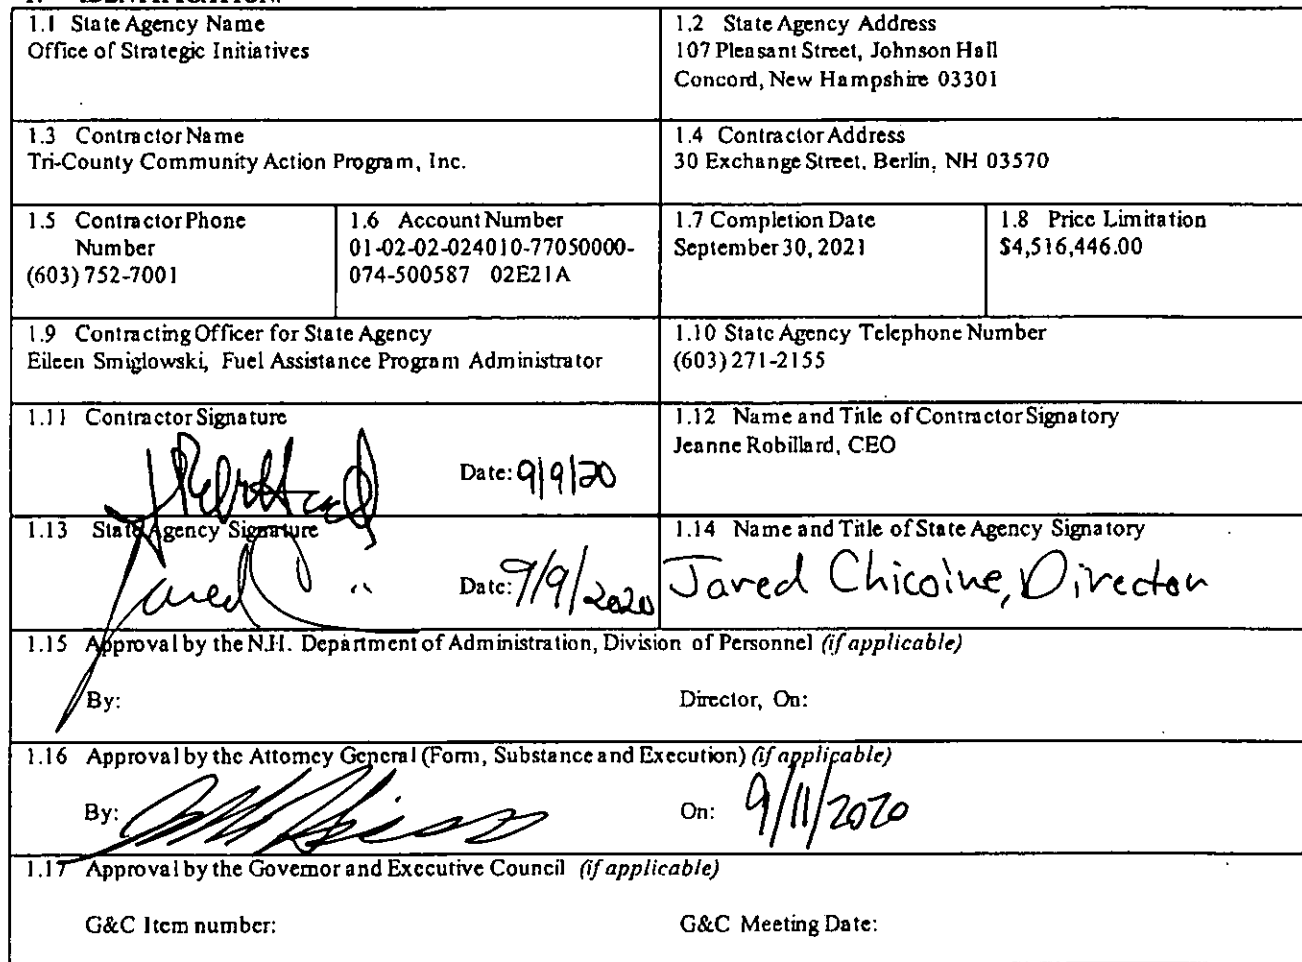 1.1 State Agency Name
Office of Strategic Initiatives
1.2 State Agency Address
107 Pleasant Street, Johnson Hall
Concord, New Hampshire 03301
1.3 Contractor Name
Tri-County Community Action Program, Inc.
1.4 Contractor Address
30 Exchange Street, Berlin, NH 03570
1.5 Contractor Phone
Number
(603) 752-7001
1.6 Account Number
01-02-02-024010-77050000-
074-500587 02E21A
1.7 Completion Date
September 30, 2021
1.8 Price Limitation
$4,516,446.00
1.9 Contracting Officer for State Agency
Eileen Smiglowski, Fuel Assistance Program Administrator
1.10 State Agency Telephone Number
(603) 271-2155
1.11 Contractor Signature
Date: 9/9/20
1.12 Name and Title of Contractor Signatory
Jeanne Robillard, CEO
1.13 State Agency Signature
Jared
Date: 9/9/2020
1.14 Name and Title of State Agency Signatory
Jared Chicoine, Director
1.15 Approval by the N.H. Department of Administration, Division of Personnel (if applicable)
By: Director, On:
1.16 Approval by the Attorney General (Form, Substance and Execution) (if applicable)
By: On: 9/11/2020
1.17 Approval by the Governor and Executive Council (if applicable)
G&C Item number: G&C Meeting Date: